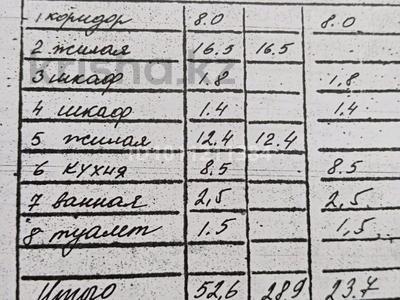 1 коридор 8.0 8.0
2 жилая 16.5 16.5 .
3 шкаф 1.8 1.8
4 шкаф 1.4 1.4
5 жилая 12.4 12.4
6 кухня 8.5 8.5
7 ванная 2,5 2,5.
8 туалет 1.5 1,5
Итого 52,6 28,9 23.7
krisha.kz